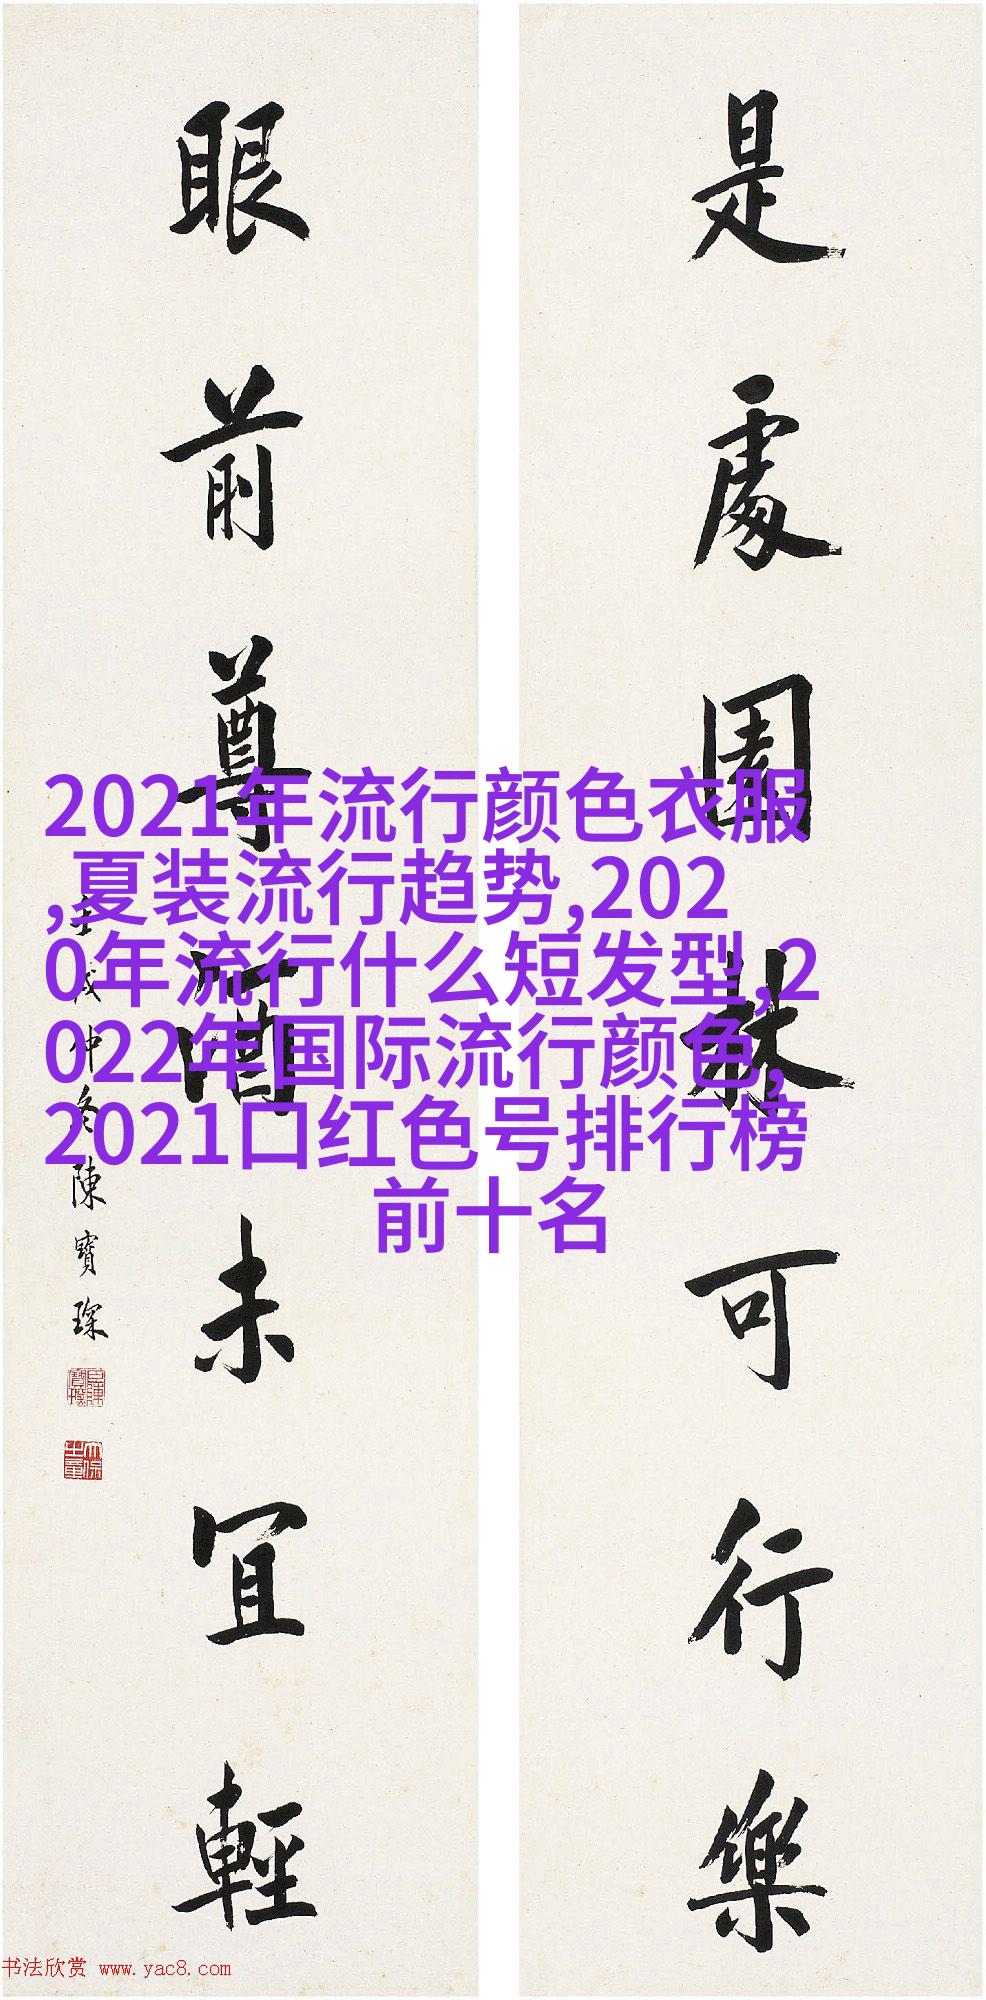 是處園林可行樂
眼前尊酒未宜輕
壬戌仲冬陳寶琛
2021年流行颜色衣服
,夏装流行趋势,202
0年流行什么短发型,2
022年国际流行颜色,
2021口红色号排行榜
前十名
书法欣赏 www.yac8.com